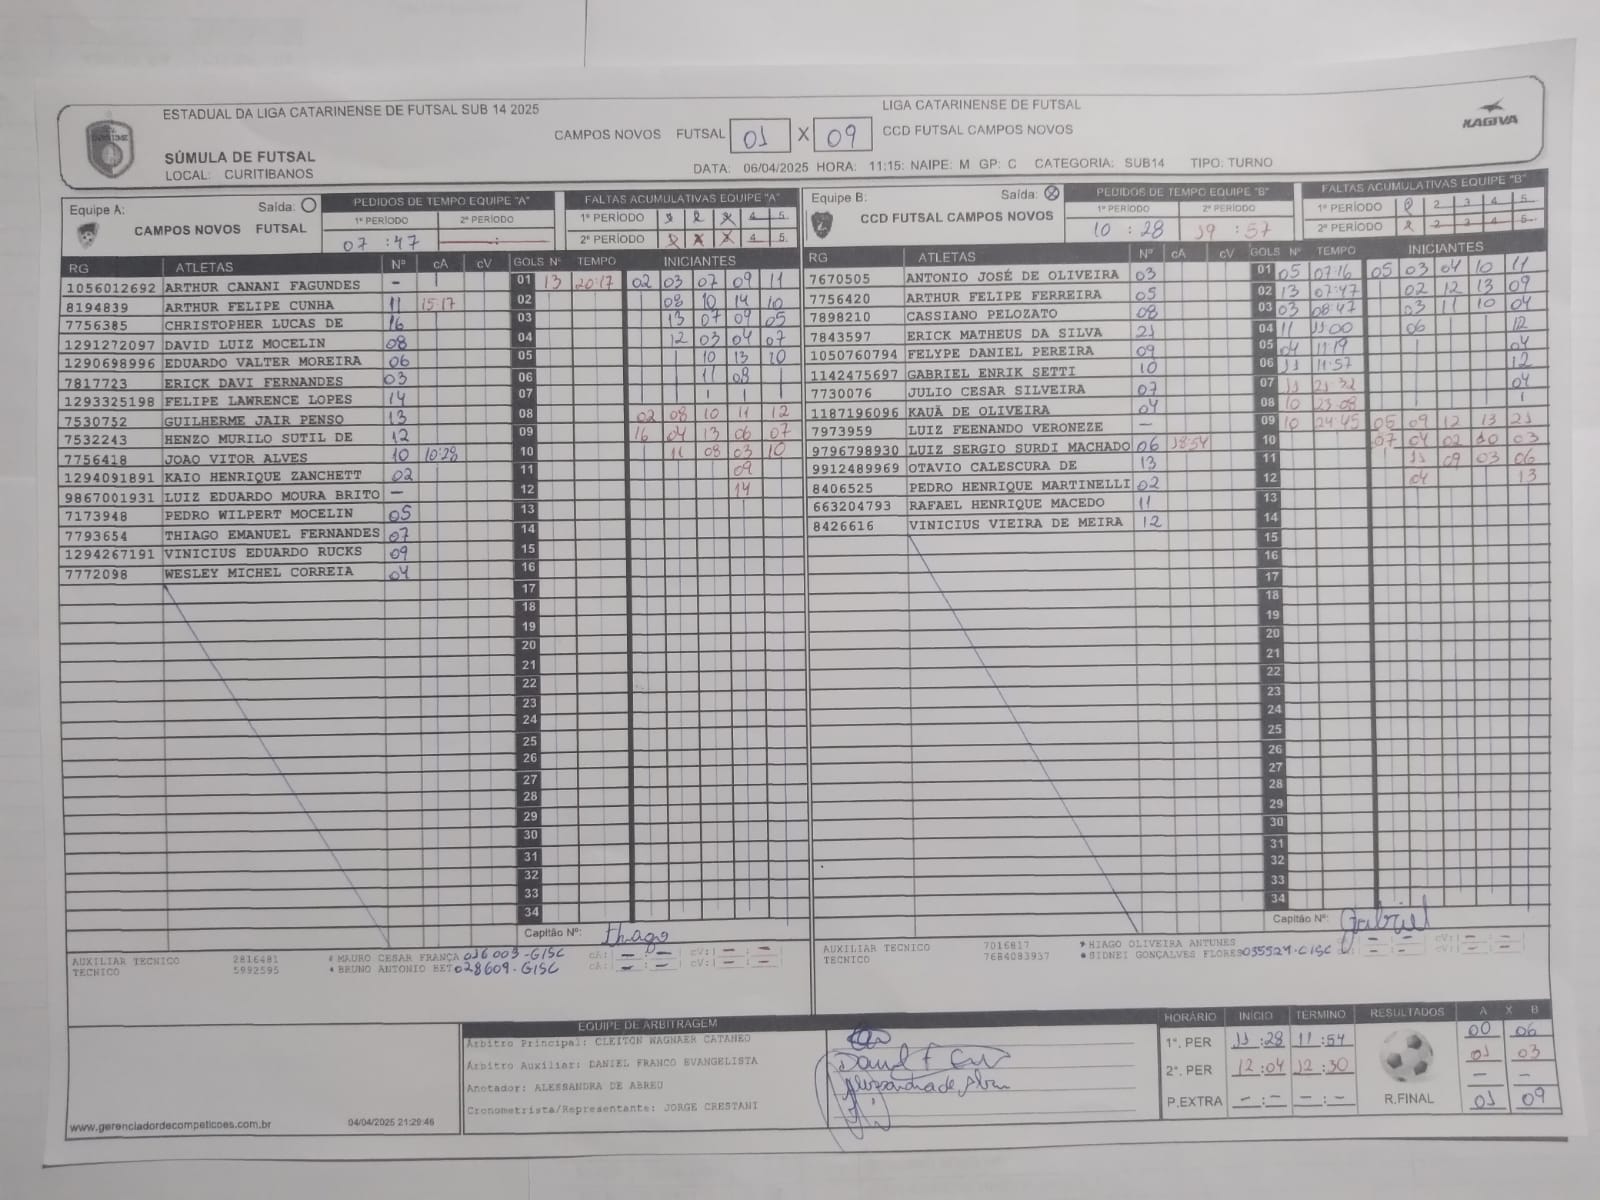 ESTADUAL DA LIGA CATARINENSE DE FUTSAL SUB 14 2025
LIGA CATARINENSE DE FUTSAL
KAGIVA
CAMPOS NOVOS FUTSAL 01 X 09 CCD FUTSAL CAMPOS NOVOS
SÚMULA DE FUTSAL
LOCAL: CURITIBANOS
DATA: 06/04/2025 HORA: 11:15: NAIPE: M GP: C CATEGORIA: SUB14 TIPO: TURNO
Equipe A: Saída:
CAMPOS NOVOS FUTSAL
PEDIDOS DE TEMPO EQUIPE "A"
1º PERÍODO 2º PERÍODO
07 : 47
FALTAS ACUMULATIVAS EQUIPE "A"
1º PERÍODO 4 5
2º PERÍODO 4 5
RG ATLETAS Nº cA cV GOLS Nº TEMPO INICIANTES
1056012692 ARTHUR CANANI FAGUNDES - 01 13 20:17 02 03 07 09 11
8194839 ARTHUR FELIPE CUNHA 11 15:17 02 08 10 14 10
7756385 CHRISTOPHER LUCAS DE 16 03 13 07 09 05
1291272097 DAVID LUIZ MOCELIN 08 04 12 03 04 07
1290698996 EDUARDO VALTER MOREIRA 06 05 10 13 10
7817723 ERICK DAVI FERNANDES 03 06 11 08
1293325198 FELIPE LAWRENCE LOPES 14 07
7530752 GUILHERME JAIR PENSO 13 08 02 08 10 11 12
7532243 HENZO MURILO SUTIL DE 12 09 16 04 13 06 07
7756418 JOAO VITOR ALVES 10 10:28 10 11 08 03 10
1294091891 KAIO HENRIQUE ZANCHETT 02 11 09
9867001931 LUIZ EDUARDO MOURA BRITO - 12 14
7173948 PEDRO WILPERT MOCELIN 05 13
7793654 THIAGO EMANUEL FERNANDES 07 14
1294267191 VINICIUS EDUARDO RUCKS 09 15
7772098 WESLEY MICHEL CORREIA 04 16
17
18
19
20
21
22
23
24
25
26
27
28
29
30
31
32
33
34
Capitão Nº: Thiago
AUXILIAR TECNICO 2816481 * MAURO CESAR FRANÇA 026003-G/SC cA: - : - cV: - -
TECNICO 5992595 * BRUNO ANTONIO BET 028609-G/SC cA: - : - cV: - -
Equipe B: Saída: X
CCD FUTSAL CAMPOS NOVOS
PEDIDOS DE TEMPO EQUIPE "B"
1º PERÍODO 2º PERÍODO
10 : 28 19 : 57
FALTAS ACUMULATIVAS EQUIPE "B"
1º PERÍODO 2 3 4 5
2º PERÍODO 2 3 4 5
RG ATLETAS Nº cA cV GOLS Nº TEMPO INICIANTES
7670505 ANTONIO JOSÉ DE OLIVEIRA 03 01 05 07:16 05 03 04 10 11
7756420 ARTHUR FELIPE FERREIRA 05 02 13 07:47 02 12 13 09
7898210 CASSIANO PELOZATO 08 03 03 08:47 03 11 10 04
7843597 ERICK MATHEUS DA SILVA 21 04 11 11:00 06 12
1050760794 FELYPE DANIEL PEREIRA 09 05 04 11:19 04
1142475697 GABRIEL ENRIK SETTI 10 06 11 11:57 12
7730076 JULIO CESAR SILVEIRA 07 07 11 21:32 04
1187196096 KAUÃ DE OLIVEIRA 04 08 10 23:08
7973959 LUIZ FEENANDO VERONEZE - 09 10 24:45 05 09 12 13 21
9796798930 LUIZ SERGIO SURDI MACHADO 06 18:54 10 07 04 02 10 03
9912489969 OTAVIO CALESCURA DE 13 11 11 09 03 06
8406525 PEDRO HENRIQUE MARTINELLI 02 12 04 13
663204793 RAFAEL HENRIQUE MACEDO 11 13
8426616 VINICIUS VIEIRA DE MEIRA 12 14
15
16
17
18
19
20
21
22
23
24
25
26
27
28
29
30
31
32
33
34
Capitão Nº: Gabriel
AUXILIAR TECNICO 7016817 * HIAGO OLIVEIRA ANTUNES - : - cV: - -
TECNICO 7684083937 * SIDNEI GONÇALVES FLORES 035529-G/SC - : - cV: - -
EQUIPE DE ARBITRAGEM
Árbitro Principal: CLEITON WAGNAER CATANEO
Árbitro Auxiliar: DANIEL FRANCO EVANGELISTA
Anotador: ALESSANDRA DE ABREU
Alessandra de Abreu
Cronometrista/Representante: JORGE CRESTANI
HORÁRIO INÍCIO TÉRMINO RESULTADOS A X B
1º. PER 11 :28 11 :54 00 06
2º. PER 12 :04 12 :30 01 03
P.EXTRA - : - - : - - -
R.FINAL 01 09
www.gerenciadordecompeticoes.com.br 04/04/2025 21:29:46